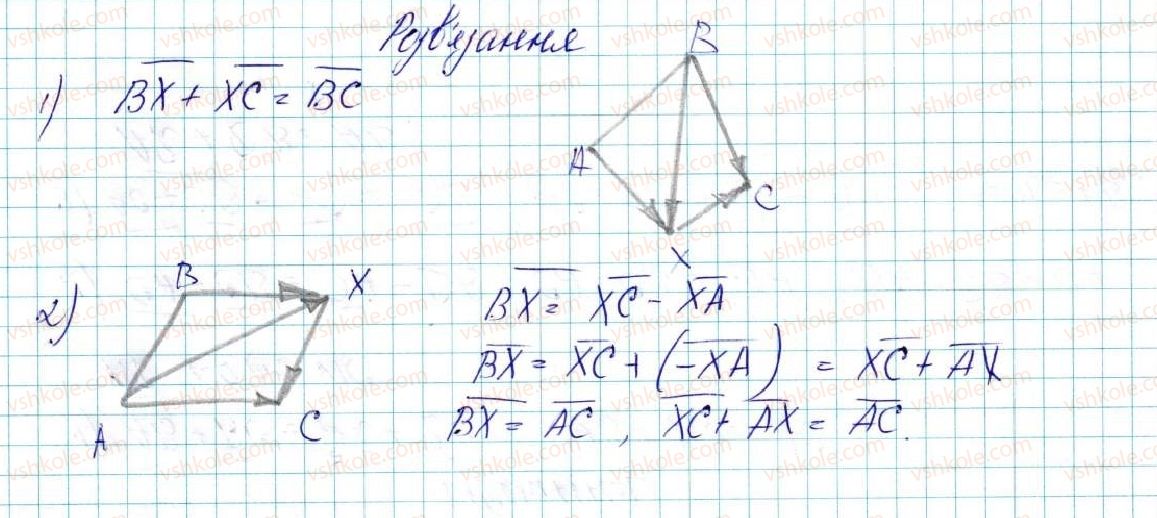 Розв'язання
1) BX + XC = BC
B
A
C
X
2)
B
X
A
C
BX = XC - XA
BX = XC + (-XA) = XC + AX
BX = AC, XC + AX = AC.
vshkole.com